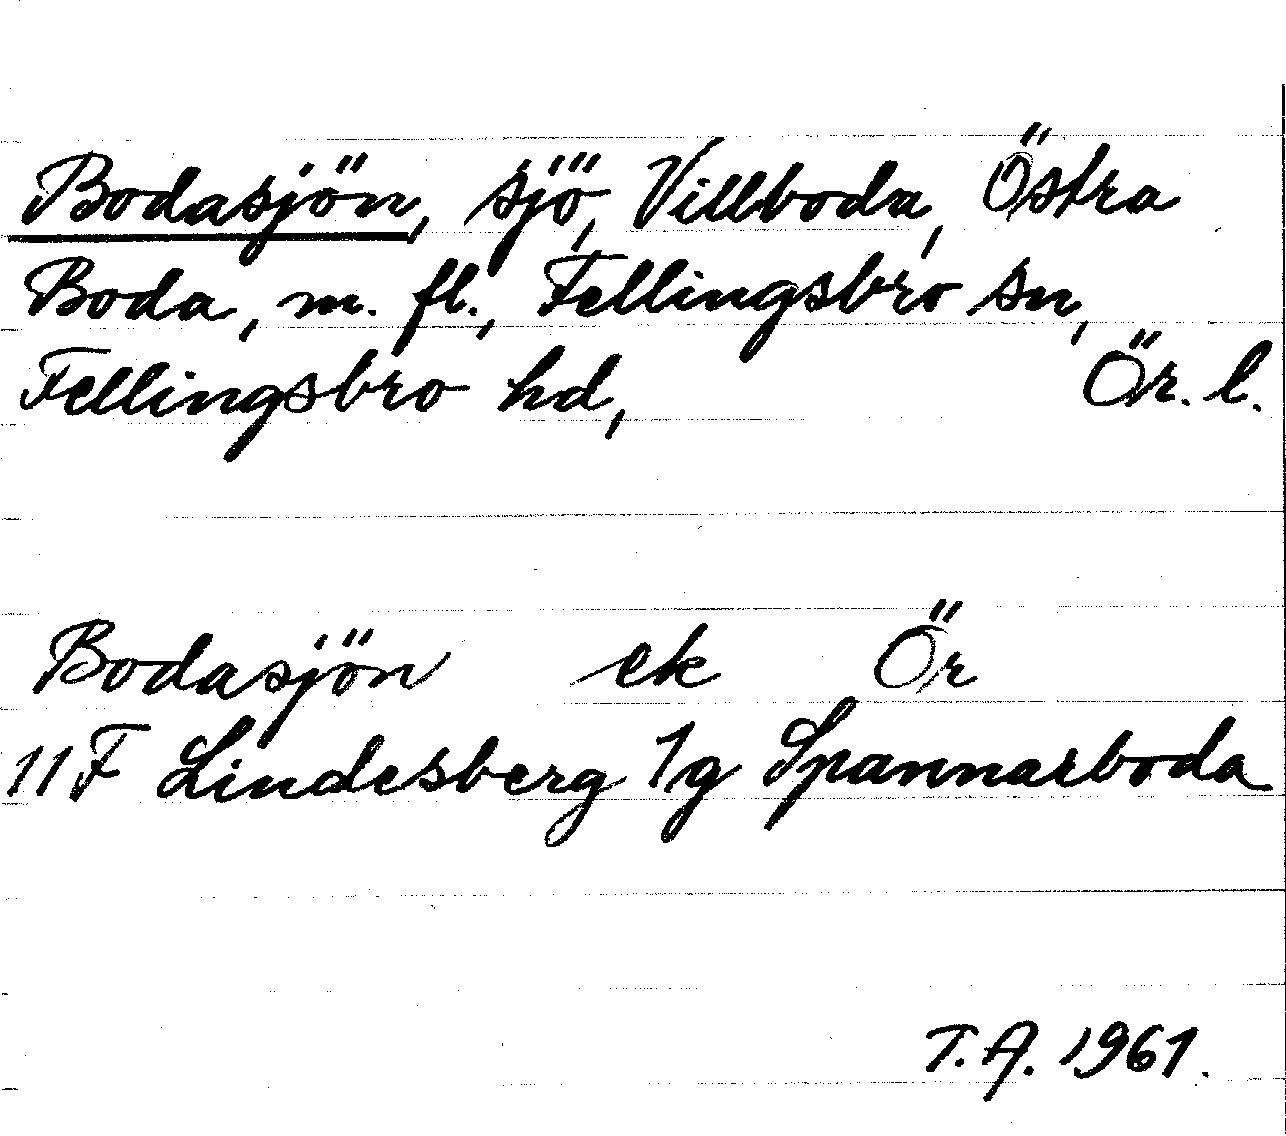 Bodasjön, sjö, Villboda, Östra
Boda, m. fl., Fellingsbro sn,
Fellingsbro hd, Ör. l.
Bodasjön ek Ör
11F Lindesberg 1g Spannarboda
T.A. 1961.